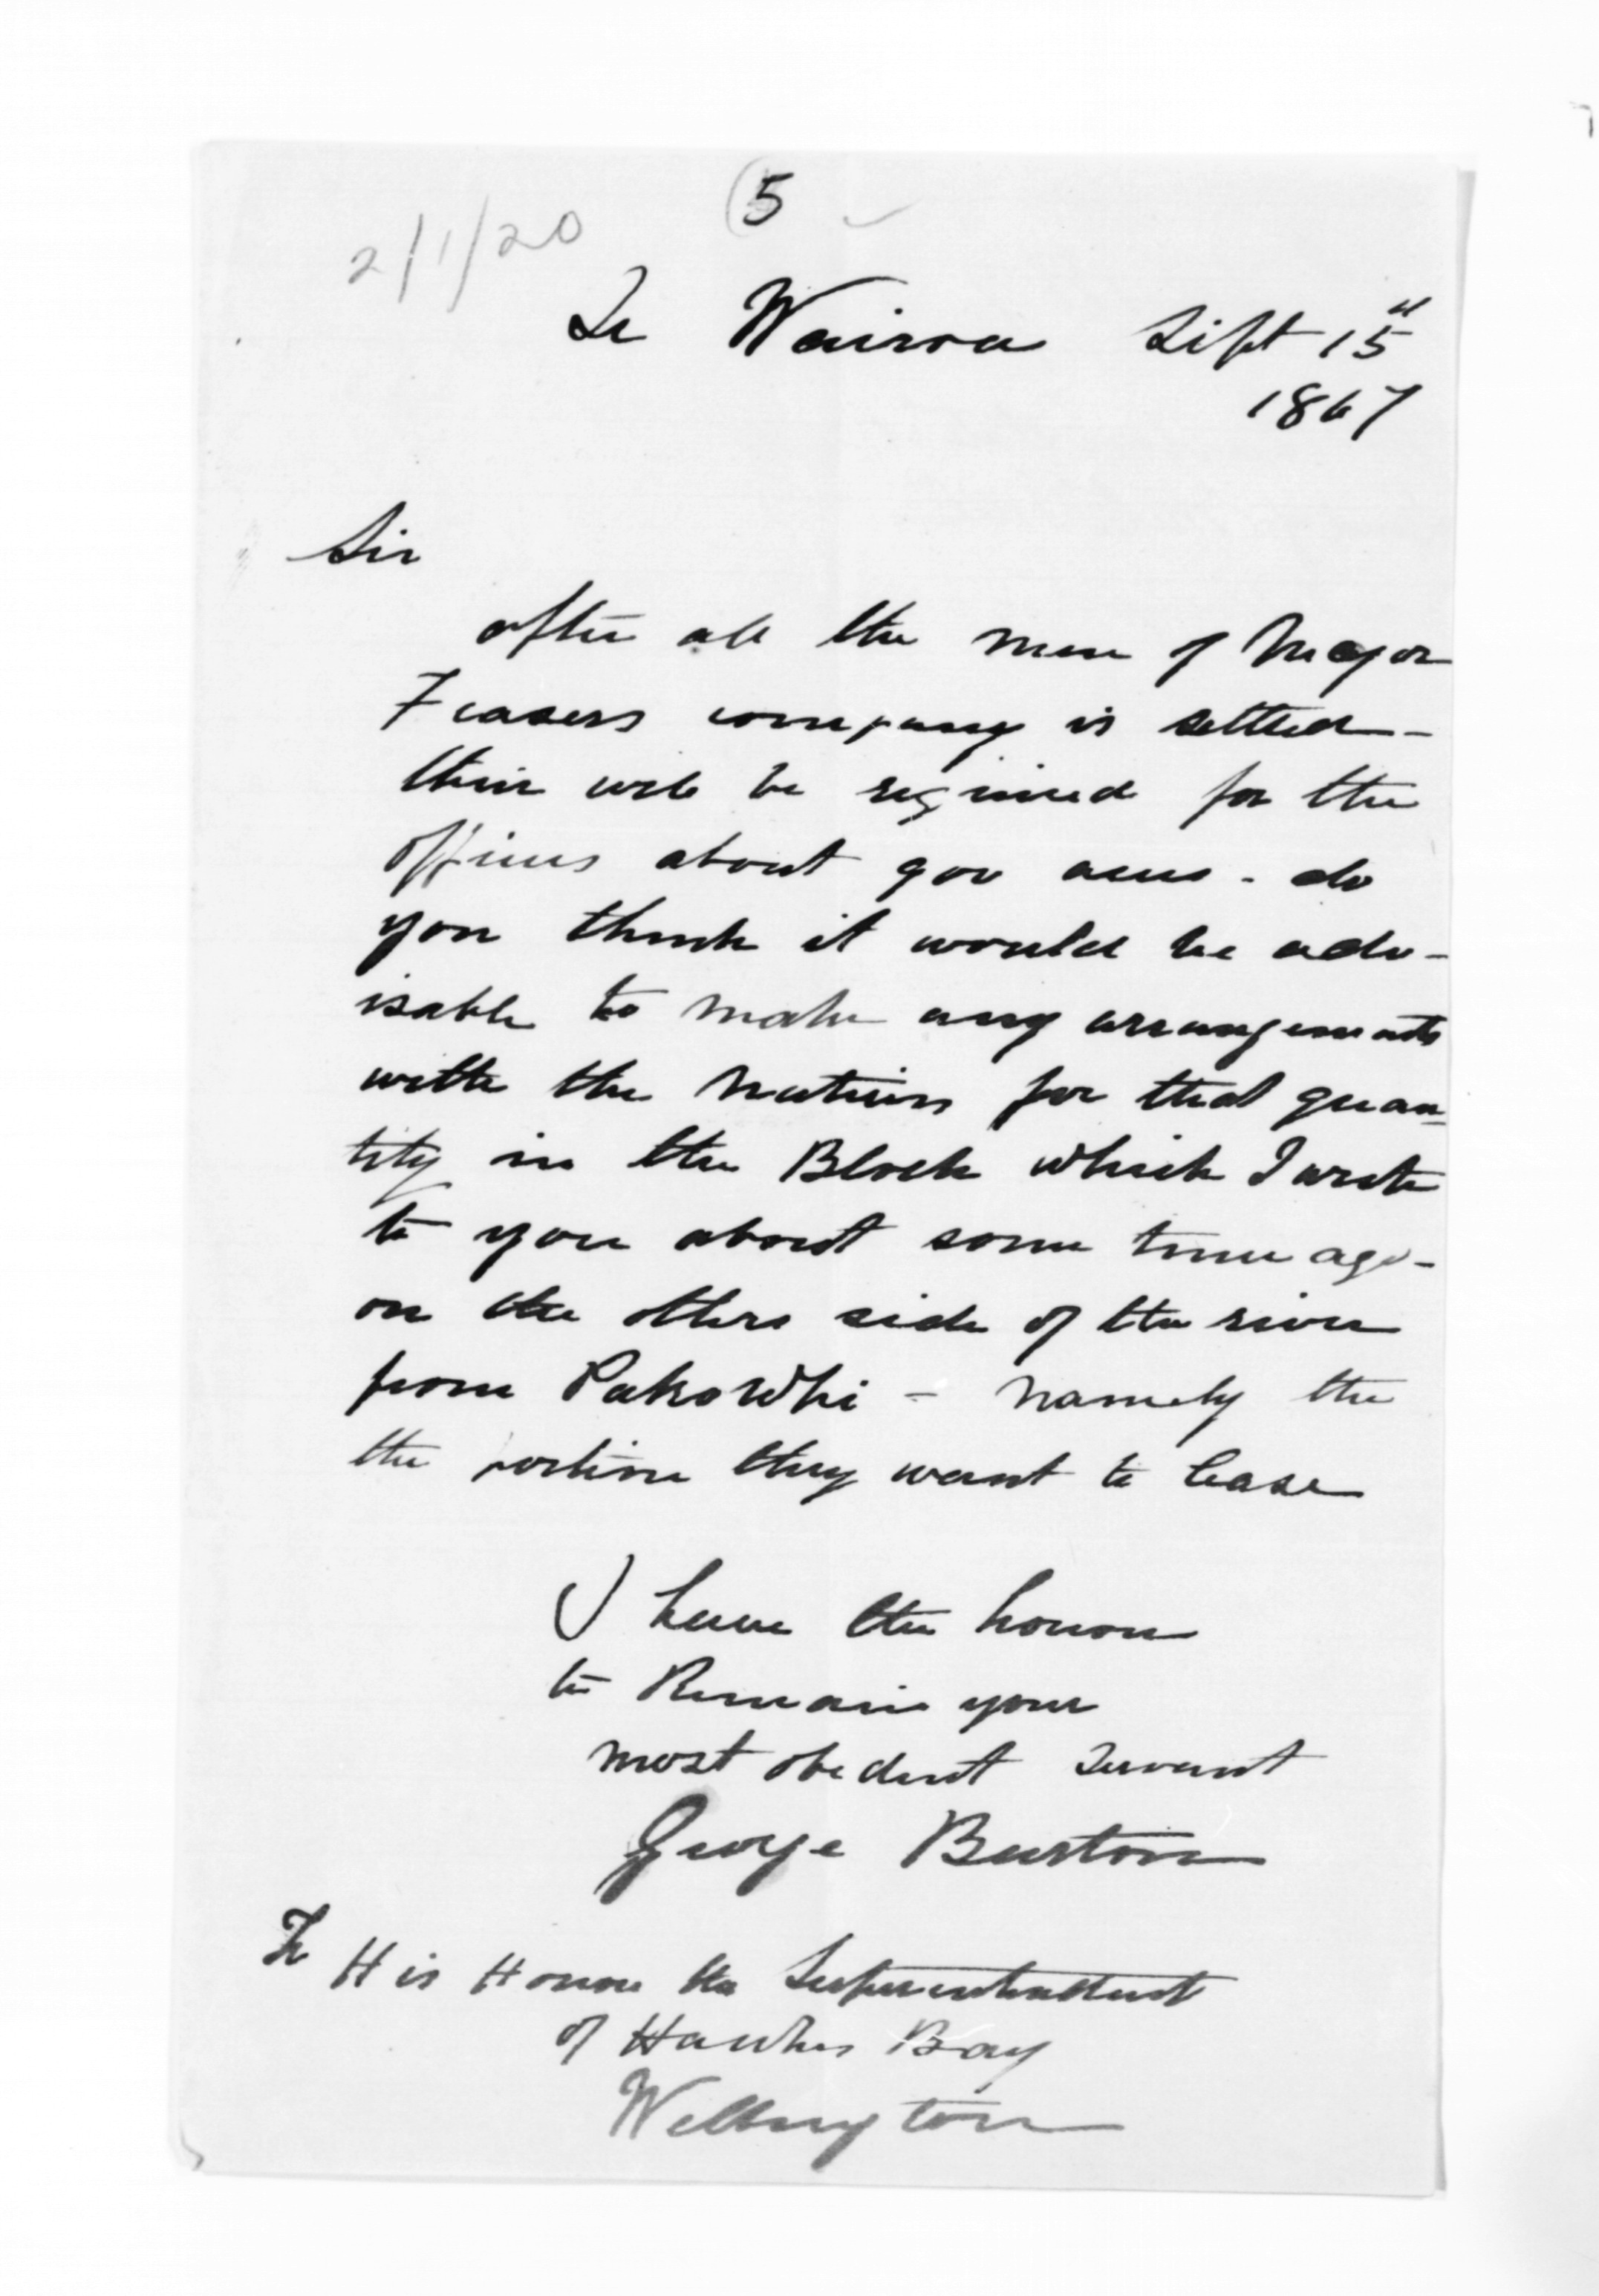 5
2/1/20
Te Wairoa Sept 15
1867
Sir
after all the men of Major
Frasers company is settled -
their will be required for the
officers about 900 acres - do
you think it would be adv-
isable to make any arrangements
with the Natives for that quan-
tity in the Block which I wrote
to you about some time ago -
on the other side of the river
from Pakowhi - namely the
the portion they want to lease
I have the honour
to Remain your
most obedient servant
George Burton
To
His Honour the Superintendent
of Hawkes Bay
Wellington